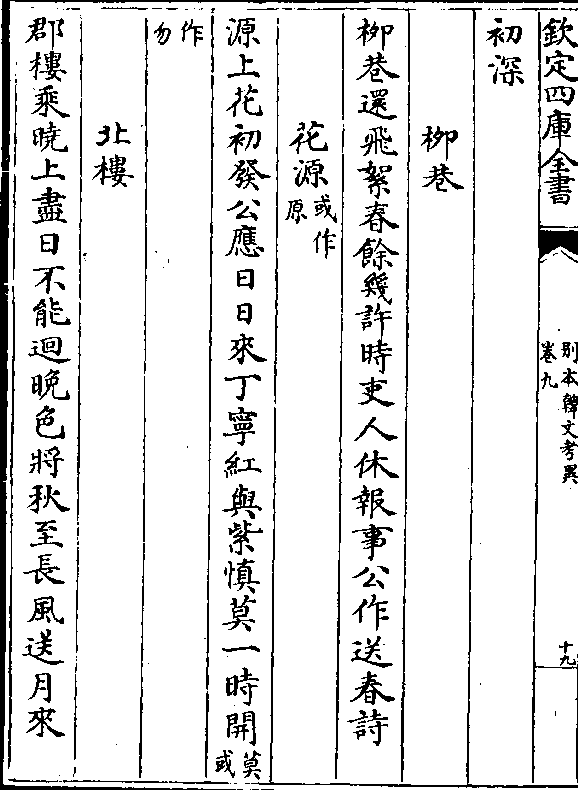 欽定四庫全書
别本韓文考異
卷九
十九
初深
柳巷
柳巷還飛絮春餘幾許時吏人休報事公作送春詩
花源或作
原
源上花初發公應日日來丁寧紅與紫慎莫一時開莫
或
作
勿
北樓
郡樓乘曉上盡日不能迴晚色將秋至長風送月來